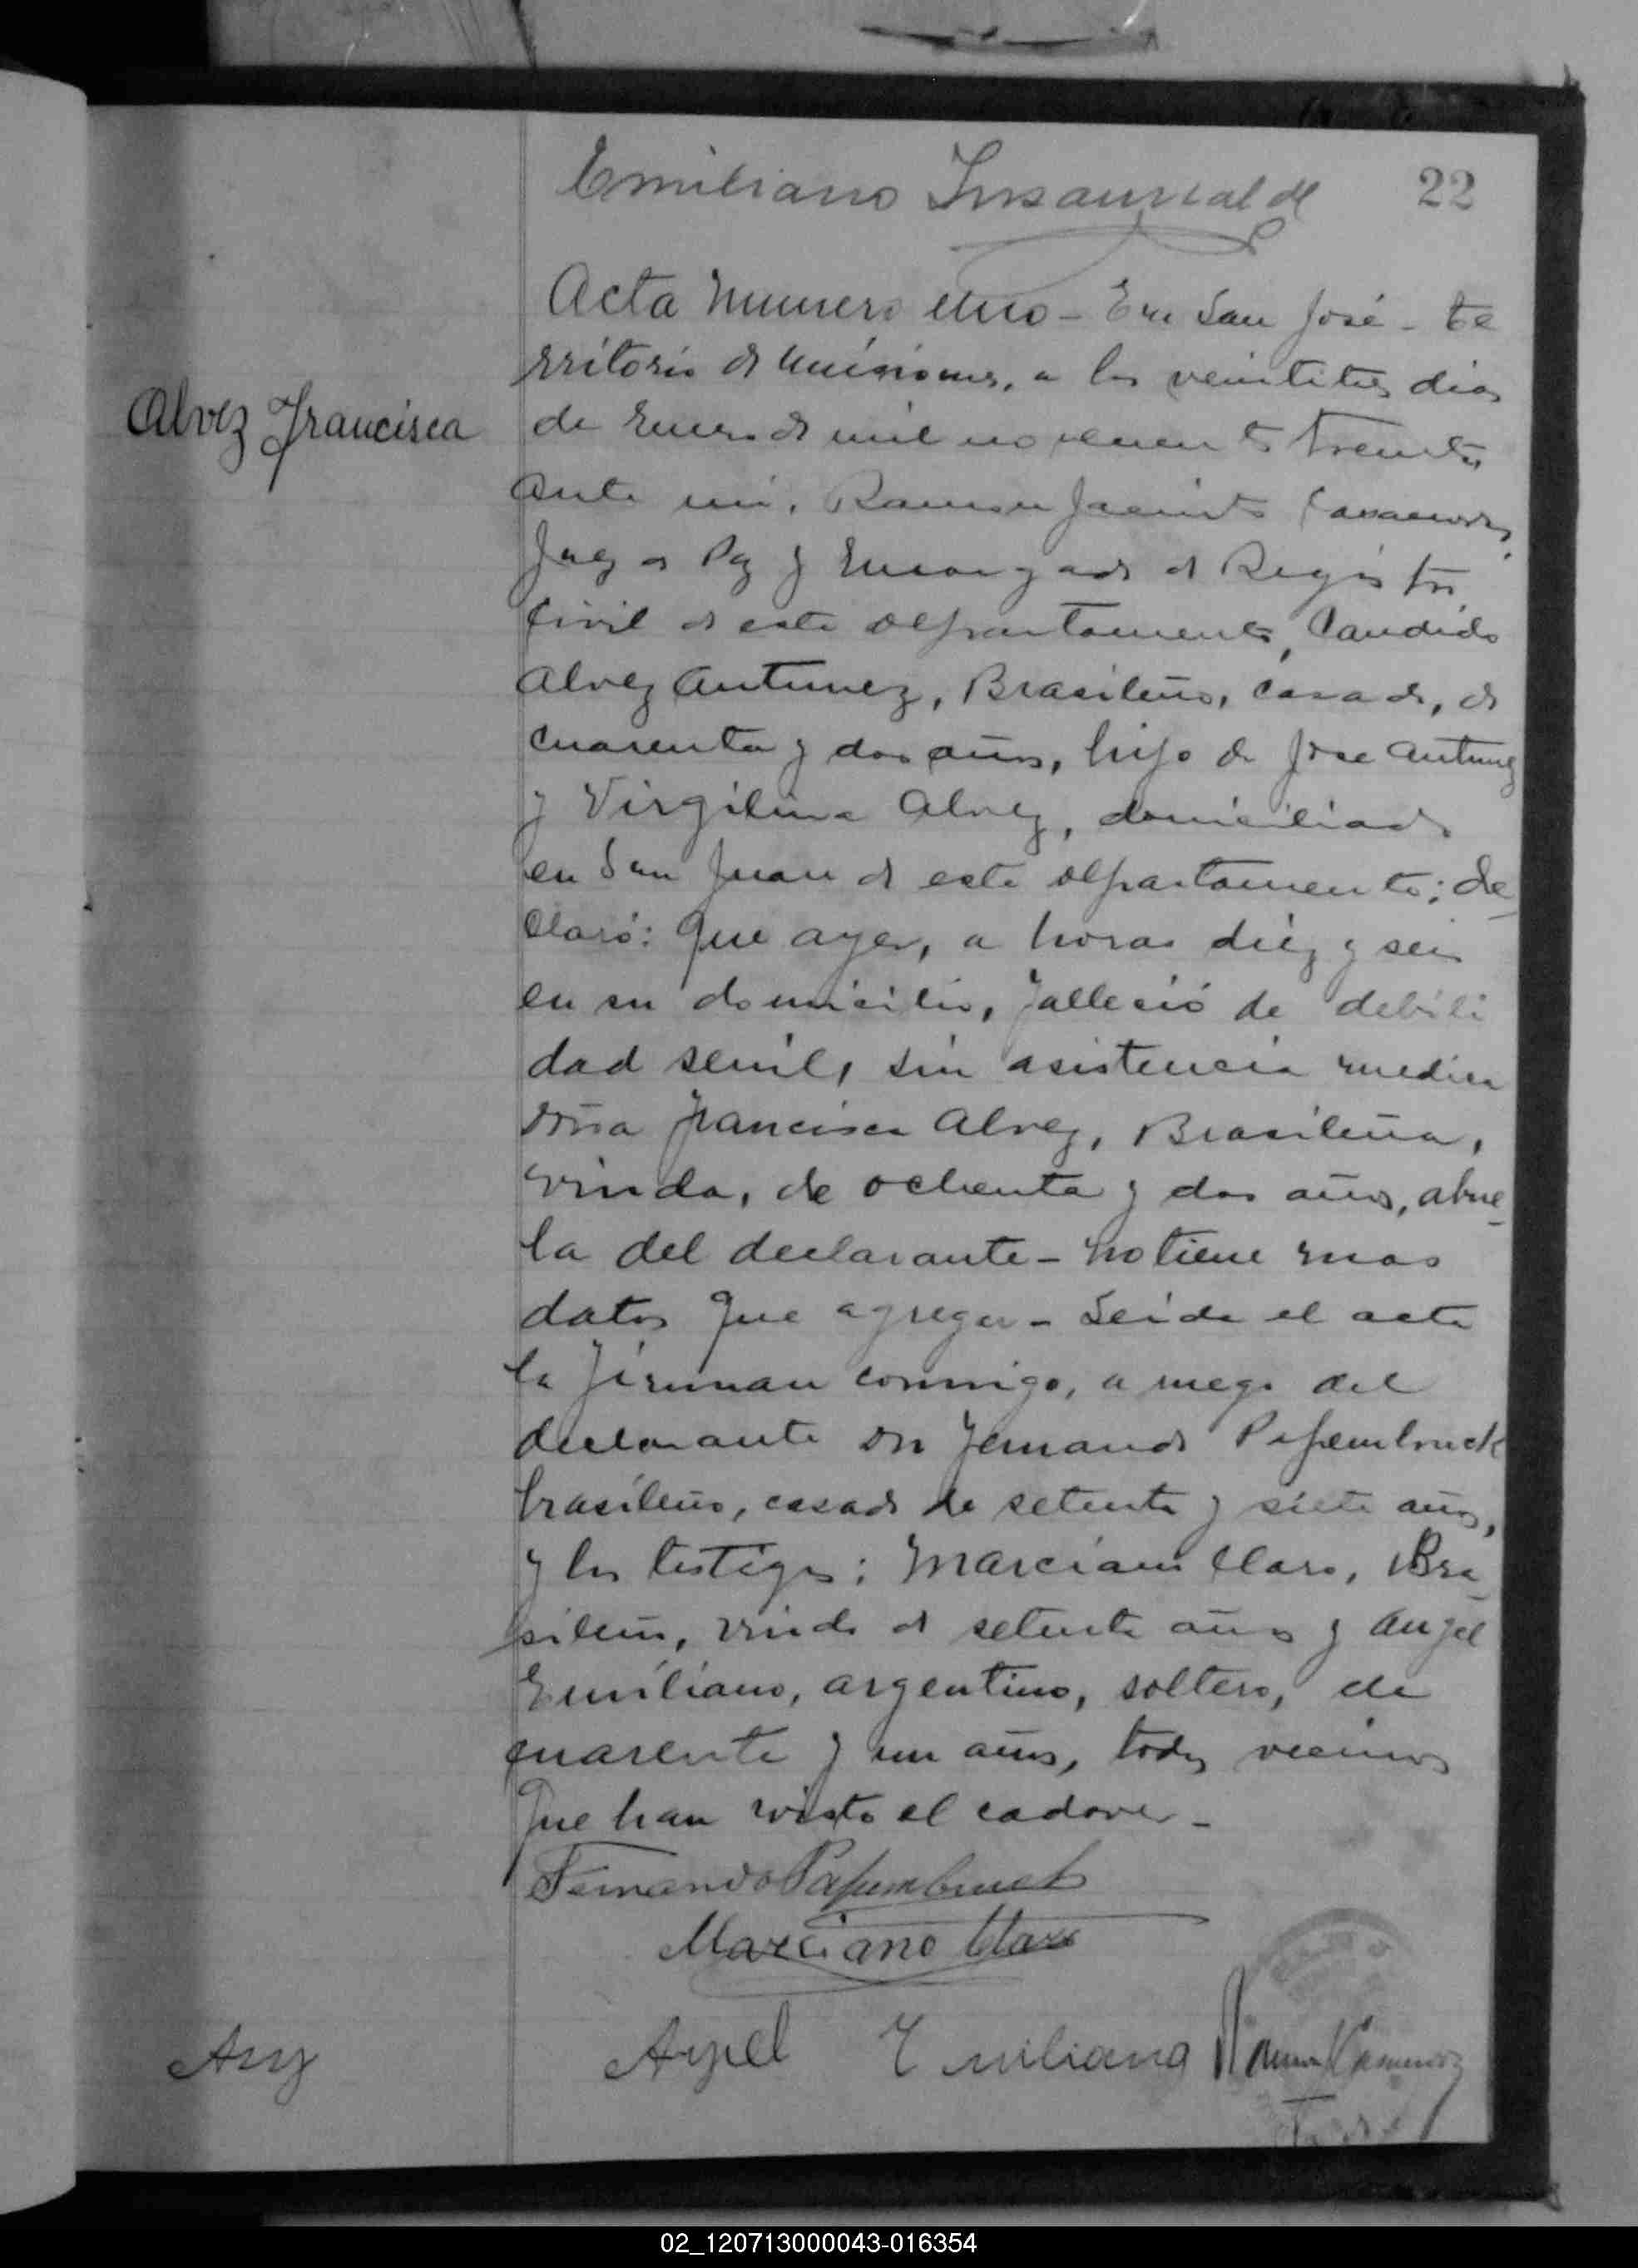 Emiliano Insaurralde
22
Acta Numero Uno - En San José - te
rritorio de Misiones, a los veintitres dias
Alvez Francisca
de Enero de mil novecientos treinta,
ante mi, Ramon Jacinto
Juez de Paz y Encargado del Registro
Civil de este departamento, Candido
Alvez Antunez, Brasileño, casado, de
cuarenta y dos años, hijo de Jose Antunez
y Virgilina Alvez, domiciliado
en San Juan de este departamento; de_
claró: Que ayer, a horas diéz y seis
en su domicilio, falleció de debili
dad senil, sin asistencia medica
doña Francisca Alvez, Brasileña,
viuda, de ochenta y dos años, abue_
la del declarante - No tiene mas
datos que agregar - Leida el acta
la firman conmigo, a ruego del
declarante Don Fernando
brasileño, casado de setenta y siete años,
y los testigos: Marciano Claro, Bra_
sileño, viudo de setenta años y Angel
Emiliano, argentino, soltero, de
cuarenta y un años, todos vecinos
que han visto el cadaver -
Fernando
Marciano Claro
Angel Emiliano Ramon
Ang
02_120713000043-016354